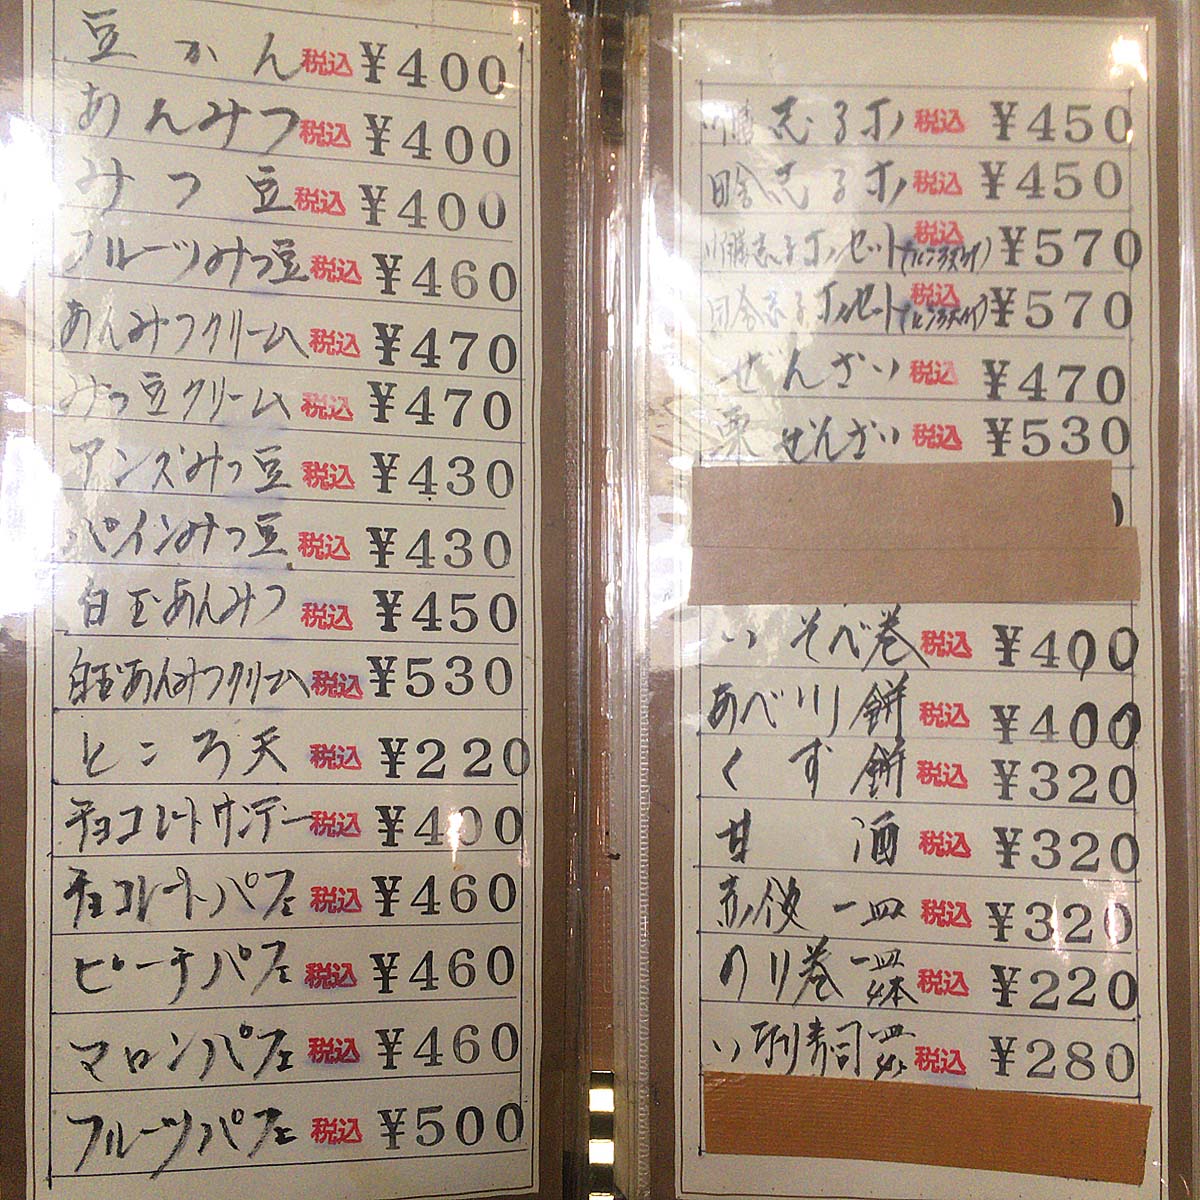 豆かん 税込 ¥400
あんみつ 税込 ¥400
みつ豆 税込 ¥400
フルーツみつ豆 税込 ¥460
あんみつクリーム 税込 ¥470
みつ豆クリーム 税込 ¥470
アンズみつ豆 税込 ¥430
パインみつ豆 税込 ¥430
白玉あんみつ 税込 ¥450
白玉あんみつクリーム 税込 ¥530
ところ天 税込 ¥220
チョコレートサンデー 税込 ¥400
チョコレートパフェ 税込 ¥460
ピーチパフェ 税込 ¥460
マロンパフェ 税込 ¥460
フルーツパフェ 税込 ¥500
志るこ 税込 ¥450
田舎志るこ 税込 ¥450
セット 税込 ¥570
田舎志るこセット 税込 ¥570
ぜんざい 税込 ¥470
栗ぜんざい 税込 ¥530
いそべ巻 税込 ¥400
あべ川餅 税込 ¥400
くず餅 税込 ¥320
甘酒 税込 ¥320
赤飯 一皿 税込 ¥320
のり巻 一皿 税込 ¥220
いなり寿司 一皿 税込 ¥280